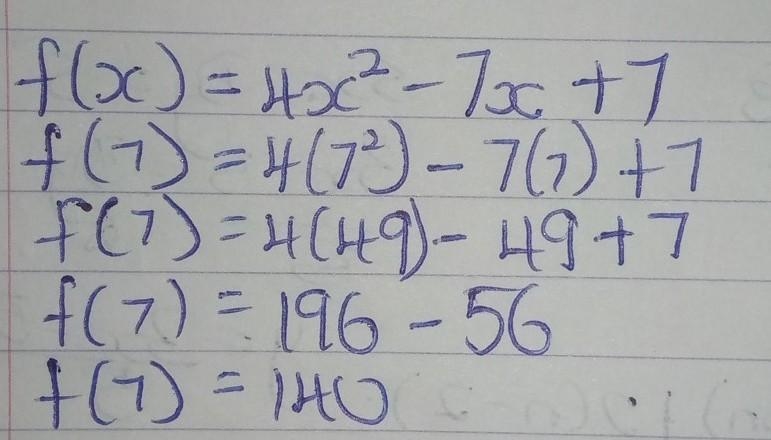 f(x) = 4x² - 7x + 7
f(7) = 4(7²) - 7(7) + 7
f(7) = 4(49) - 49 + 7
f(7) = 196 - 56
f(7) = 140